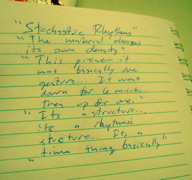 "Stochastic Rhythms"
"The material
its own density"
"This piece is
not basically one
gesture. It went
down for
Then up for one."
"Its a structure...
its a rhythmic
structure. Its a
time thing basically"